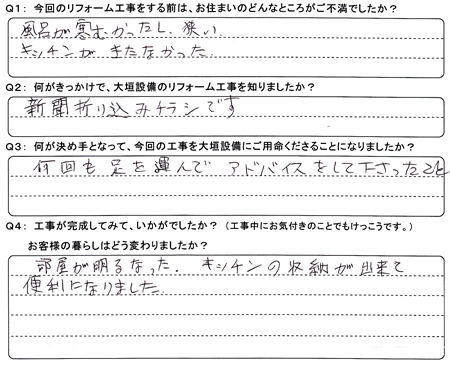 Q1： 今回のリフォーム工事をする前は、お住まいのどんなところがご不満でしたか？
風呂が寒むかったし、狭い.
キッチンが きたなかった.
Q2： 何がきっかけで、大垣設備のリフォーム工事を知りましたか？
新聞折り込みチラシです
Q3： 何が決め手となって、今回の工事を大垣設備にご用命くださることになりましたか？
何回も 足を 運んで アドバイスをして下さったこと
Q4： 工事が完成してみて、いかがでしたか？ （工事中にお気付きのことでもけっこうです。）
お客様の暮らしはどう変わりましたか？
部屋が明るなった. キッチンの収納が出来て
便利になりました.